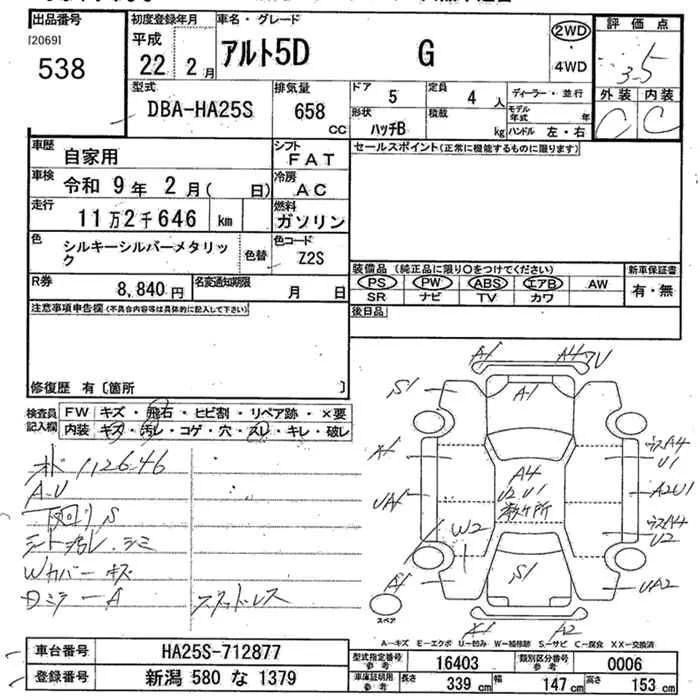 出品番号
[2069]
538
初度登録年月
平成
22 2月
車名・グレード
アルト5D G
2WD
・
4WD
評価点
3.5
外装 内装
C C
型式
DBA-HA25S
排気量
658
CC
ドア
5
定員
4人
形状
ハッチB
積載
kg
ディーラー・並行
モデル年式 年
ハンドル 左・右
車歴
自家用
シフト
FAT
車検
令和 9年 2月( 日)
冷房
AC
走行
11万2千646 km
燃料
ガソリン
色
シルキーシルバーメタリック
色替
色コード
Z2S
R券
8,840円
名変通知期限
月 日
セールスポイント(正常に機能するものに限ります)
装備品(純正品に限り○をつけてください)
PS PW ABS エアB AW
SR ナビ TV カワ
新車保証書
有・無
後日品
注意事項申告欄(不具合内容等は具体的に記入して下さい)
修復歴 有〔箇所 〕
検査員記入欄
FW キズ・飛石・ヒビ割・リペア跡・×要
内装 キズ・汚レ・コゲ・穴・スレ・キレ・破レ
112646
A-U
S
シート汚レ・シミ
Wカバーキズ
A
スタッドレス
A1
A4
U
S1
A1
A1
UA1
A4
U2 U1
W2
S1
A1
A4
U1
A2U1
A4
U2
UA2
X1
A2
スペア
A-キズ E-エクボ U-凹み W-補修跡 S-サビ C-腐食 XX-交換済
車台番号
HA25S-712877
登録番号
新潟 580 な 1379
型式指定番号
参考
16403
類別区分番号
参考
0006
車庫証明用
参考
長さ 339cm 幅 147cm 高さ 153cm